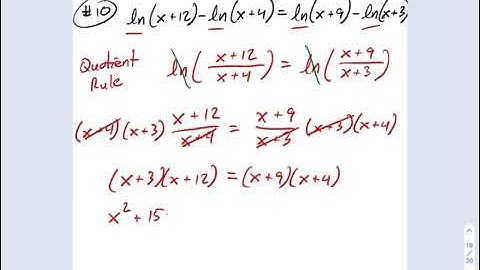 #10 ln(x+12)-ln(x+4)=ln(x+9)-ln(x+3)
Quotient Rule ln(x+12/x+4) = ln(x+9/x+3)
(x+4)(x+3) x+12/x+4 = x+9/x+3 (x+3)(x+4)
(x+3)(x+12)=(x+9)(x+4)
x²+15
19
/
20